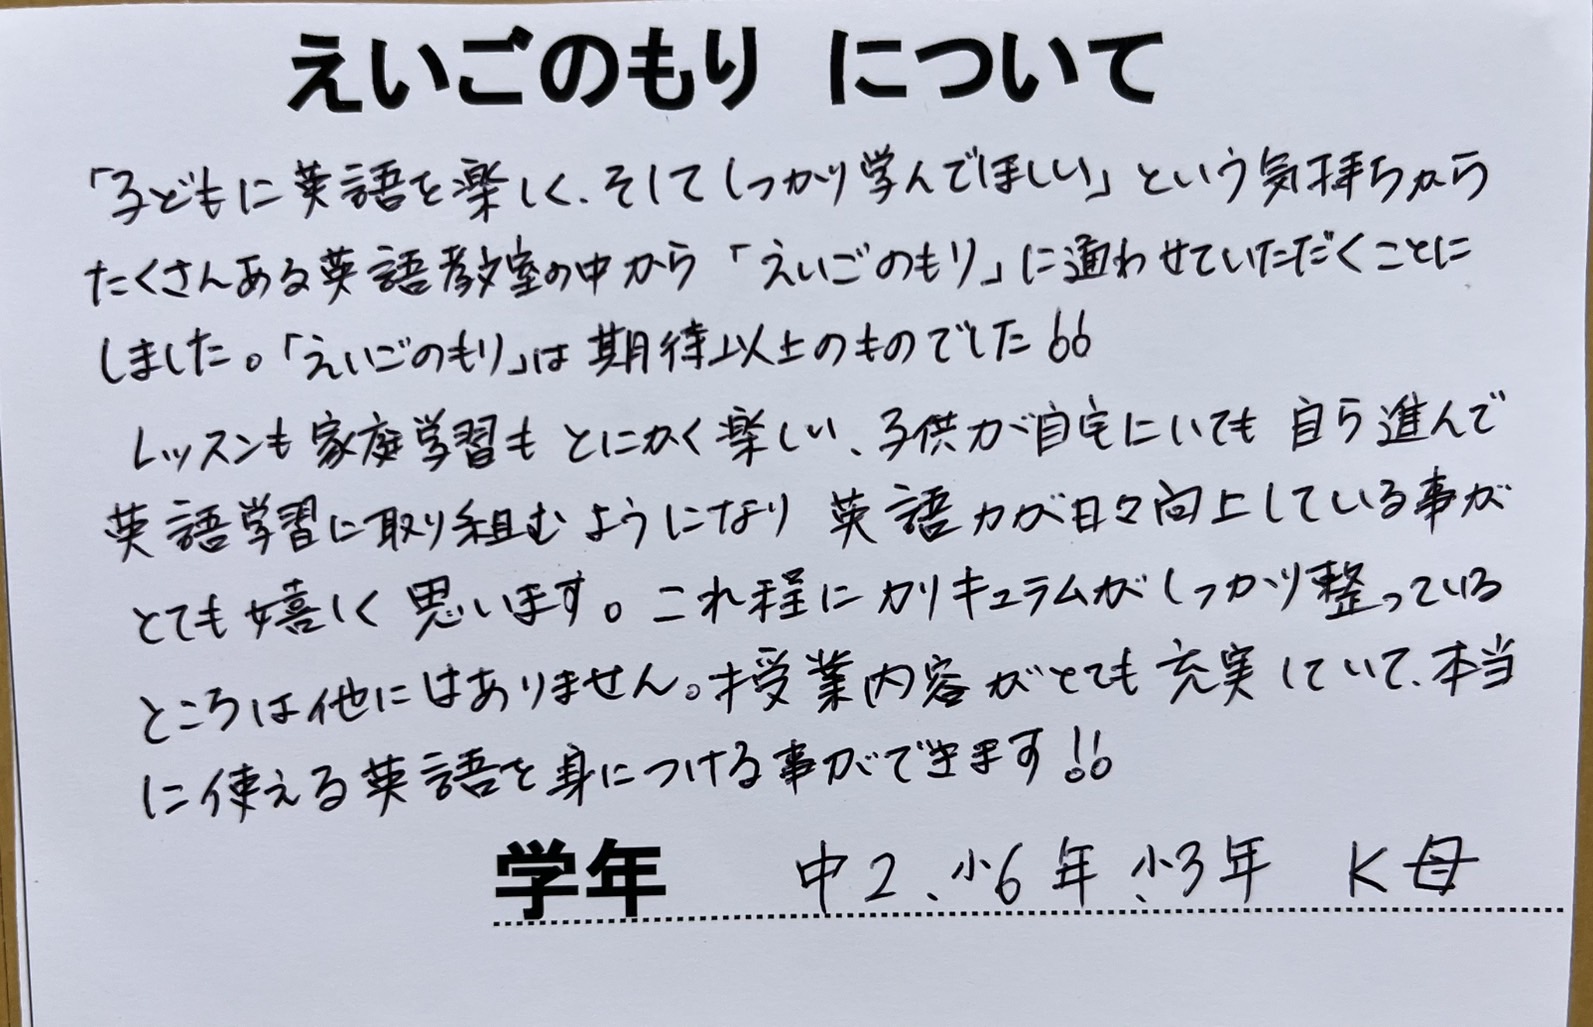 えいごのもり について
「子どもに英語を楽しく、そしてしっかり学んでほしい」という気持ちから
たくさんある英語教室の中から「えいごのもり」に通わせていただくことに
しました。「えいごのもり」は期待以上のものでした!!
レッスンも家庭学習もとにかく楽しい、子供が自宅にいても自ら進んで
英語学習に取り組むようになり英語力が日々向上している事が
とても嬉しく思います。これ程にカリキュラムがしっかり整っている
ところは他にはありません。授業内容がとても充実していて、本当
に使える英語を身につける事ができます!!
学年 中2、小6年、小3年 K母